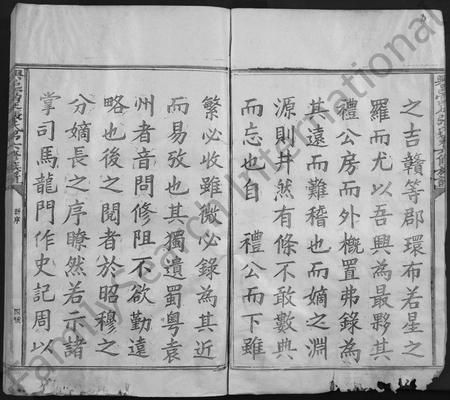 之吉贛等郡環布若星之
羅而尤以吾興為最夥其
禮公房而外概置弗錄為
其遠而難稽也而嫡之淵
源則井然有條不敢數典
而忘也自　禮公而下雖
繁必收雖微必錄為其近
而易攷也其獨遺蜀粵袁
州者音問修阻不欲勤遠
略也後之閱者於昭穆之
分嫡長之序瞭然若示諸
掌司馬龍門作史記周以
新序
FamilySearch International